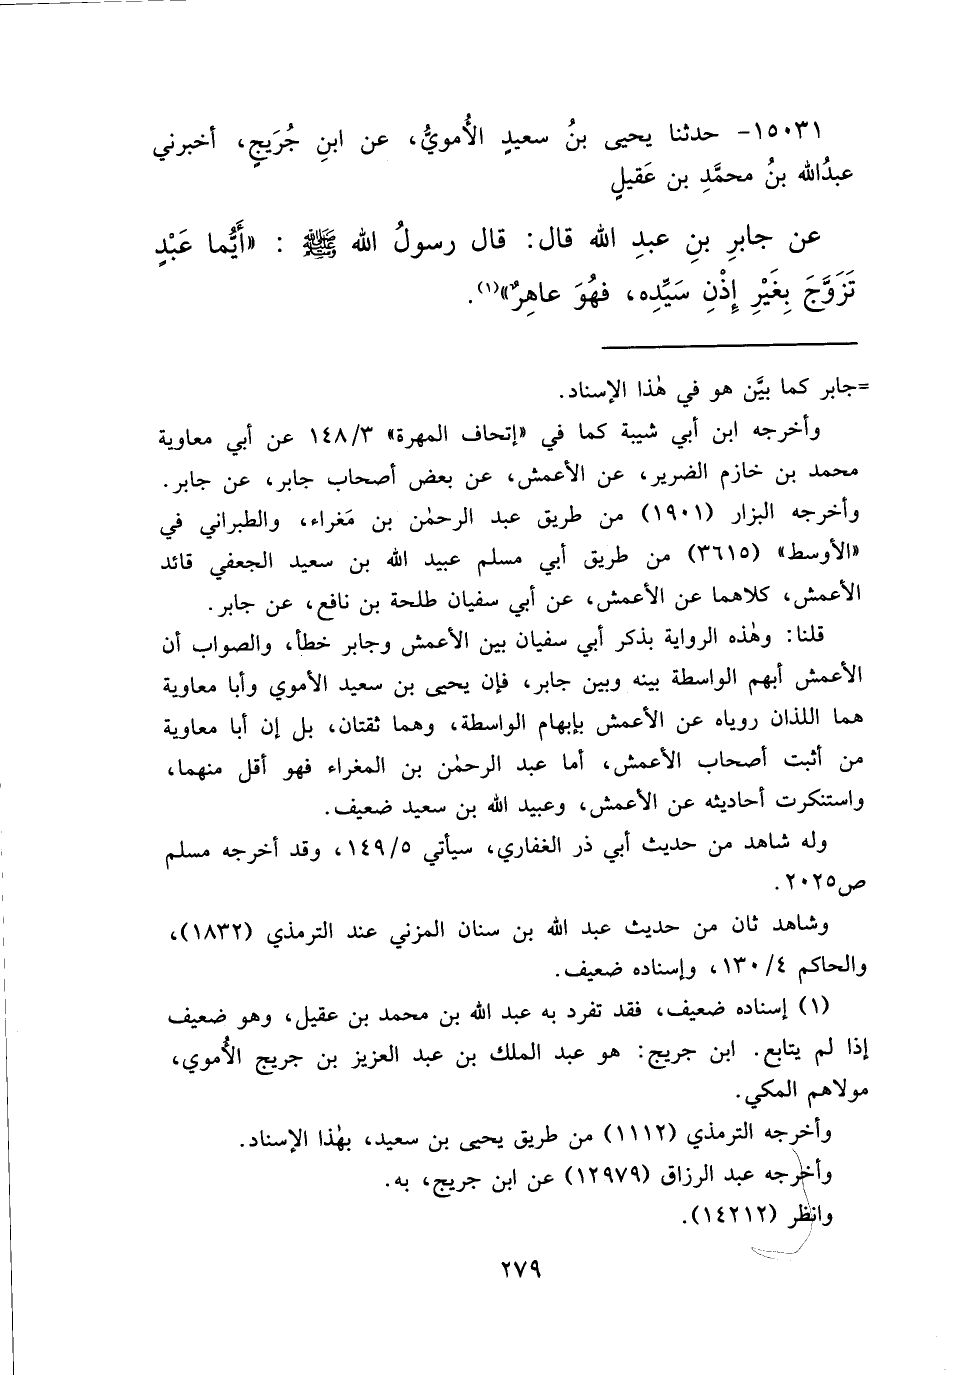 ١٥٠٣١- حدثنا يحيى بنُ سعيدٍ الأُمويُّ، عن ابنِ جُرَيجٍ، أخبرني
عبدُالله بنُ محمَّدِ بن عَقيلٍ
عن جابرِ بنِ عبدِ الله قال: قال رسولُ الله ﷺ : «أَيُّما عَبْدٍ
تَزَوَّجَ بِغَيْرِ إِذْنِ سَيِّدِه، فهُوَ عاهِرٌ»(١).
=جابر كما بيَّن هو في هٰذا الإسناد.
وأخرجه ابن أبي شيبة كما في «إتحاف المهرة» ١٤٨/٣ عن أبي معاوية
محمد بن خازم الضرير، عن الأعمش، عن بعض أصحاب جابر، عن جابر.
وأخرجه البزار (١٩٠١) من طريق عبد الرحمٰن بن مَغراء، والطبراني في
«الأوسط» (٣٦١٥) من طريق أبي مسلم عبيد الله بن سعيد الجعفي قائد
الأعمش، كلاهما عن الأعمش، عن أبي سفيان طلحة بن نافع، عن جابر.
قلنا: وهٰذه الرواية بذكر أبي سفيان بين الأعمش وجابر خطأ، والصواب أن
الأعمش أبهم الواسطة بينه وبين جابر، فإن يحيى بن سعيد الأموي وأبا معاوية
هما اللذان روياه عن الأعمش بإبهام الواسطة، وهما ثقتان، بل إن أبا معاوية
من أثبت أصحاب الأعمش، أما عبد الرحمٰن بن المغراء فهو أقل منهما،
واستنكرت أحاديثه عن الأعمش، وعبيد الله بن سعيد ضعيف.
وله شاهد من حديث أبي ذر الغفاري، سيأتي ١٤٩/٥، وقد أخرجه مسلم
ص٢٠٢٥.
وشاهد ثان من حديث عبد الله بن سنان المزني عند الترمذي (١٨٣٢)،
والحاكم ١٣٠/٤، وإسناده ضعيف.
(١) إسناده ضعيف، فقد تفرد به عبد الله بن محمد بن عقيل، وهو ضعيف
إذا لم يتابع. ابن جريج: هو عبد الملك بن عبد العزيز بن جريج الأُموي،
مولاهم المكي.
وأخرجه الترمذي (١١١٢) من طريق يحيى بن سعيد، بهٰذا الإسناد.
وأخرجه عبد الرزاق (١٢٩٧٩) عن ابن جريج، به.
وانظر (١٤٢١٢).
٢٧٩